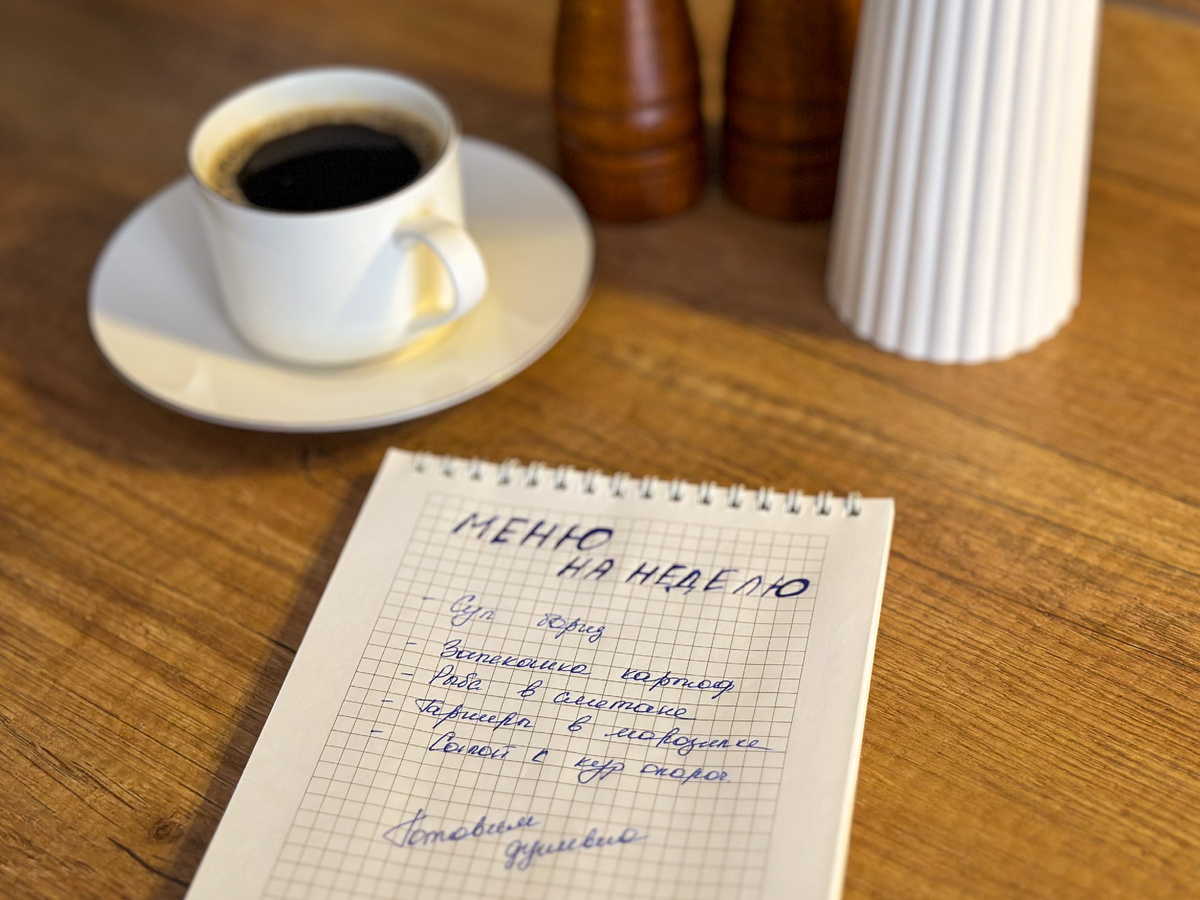 МЕНЮ
НА НЕДЕЛЮ
- Суп борщ
- Запеканка картоф
- Рыба в сметане
- Гарниры в морозилке
- Салат с кур
Готовим
душевно